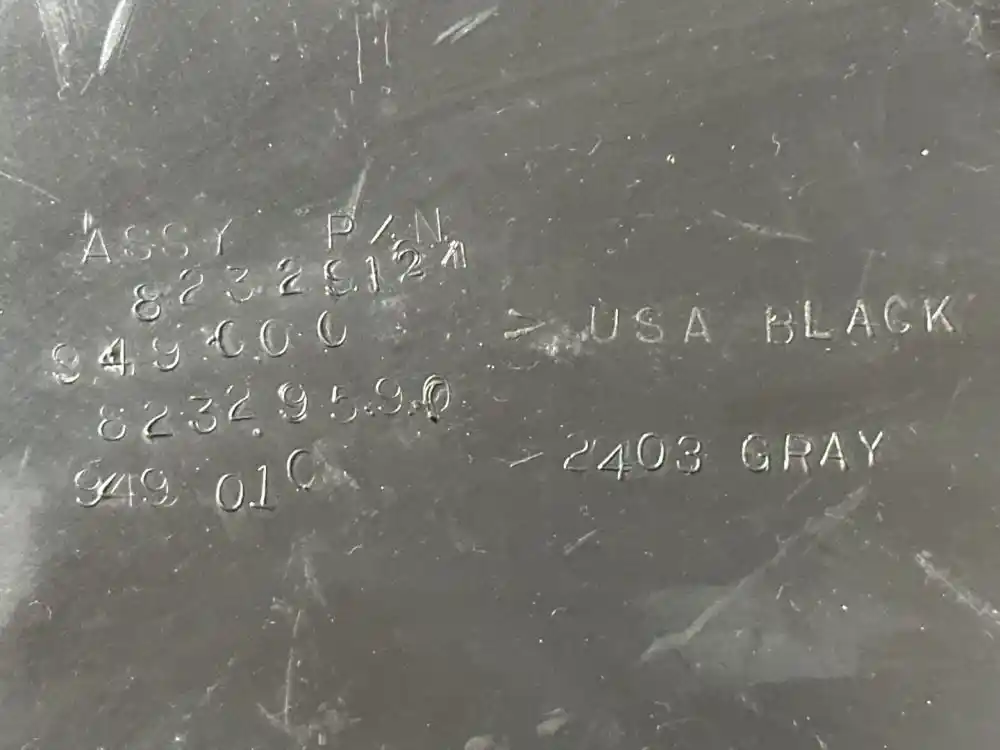 ASSY P/N
949 000 > USA BLACK
82329590
949 010 - 2403 GRAY